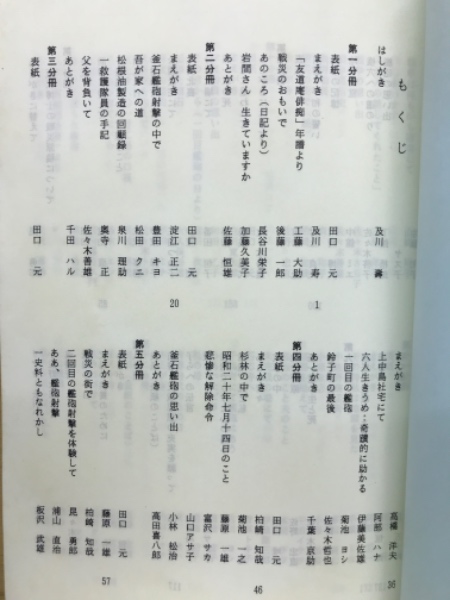 もくじ
はしがき 及川 壽
第一分冊
表紙 田口 元
まえがき 及川 寿 1
「友道庵俳痴」年譜より 工藤 大助
戦災のおもいで 後藤 一郎
あのころ(日記より) 長谷川栄子
岩間さん 生きていますか 加藤久美子
あとがき 佐藤 恒雄
第二分冊
表紙 田口 元
まえがき 淀江 正二 20
釜石艦砲射撃の中で 豊田 キヨ
吾が家への道 松田 クニ
松根油製造の回顧録 泉川 理助
一救護隊員の手記 奥寺 正
父を背負いて 佐々木善雄
あとがき 千田 ハル
第三分冊
表紙 田口 元
まえがき 高橋 洋夫 36
上中島社宅にて 阿部 ハナ
六人生きうめ:奇蹟的に助かる 伊藤美佐雄
一回目の艦砲 菊池 ヨシ
鈴子町の最後 佐々木哲也
あとがき 千葉 京助
第四分冊
表紙 田口 元
まえがき 柏崎 知哉 46
杉林の中で 菊池 一之
昭和二十年七月十四日のこと 藤原 一雄
悲惨な解除命令 富沢 サカ
山口アサ子
釜石艦砲の思い出 小林 松治
あとがき 高田喜八郎
第五分冊
表紙 田口 元
まえがき 藤原 一雄 57
戦災の街で 柏崎 知哉
二回目の艦砲射撃を体験して 勇郎
ああ、艦砲射撃 浦山 直治
一史料ともなれかし 板沢 武雄